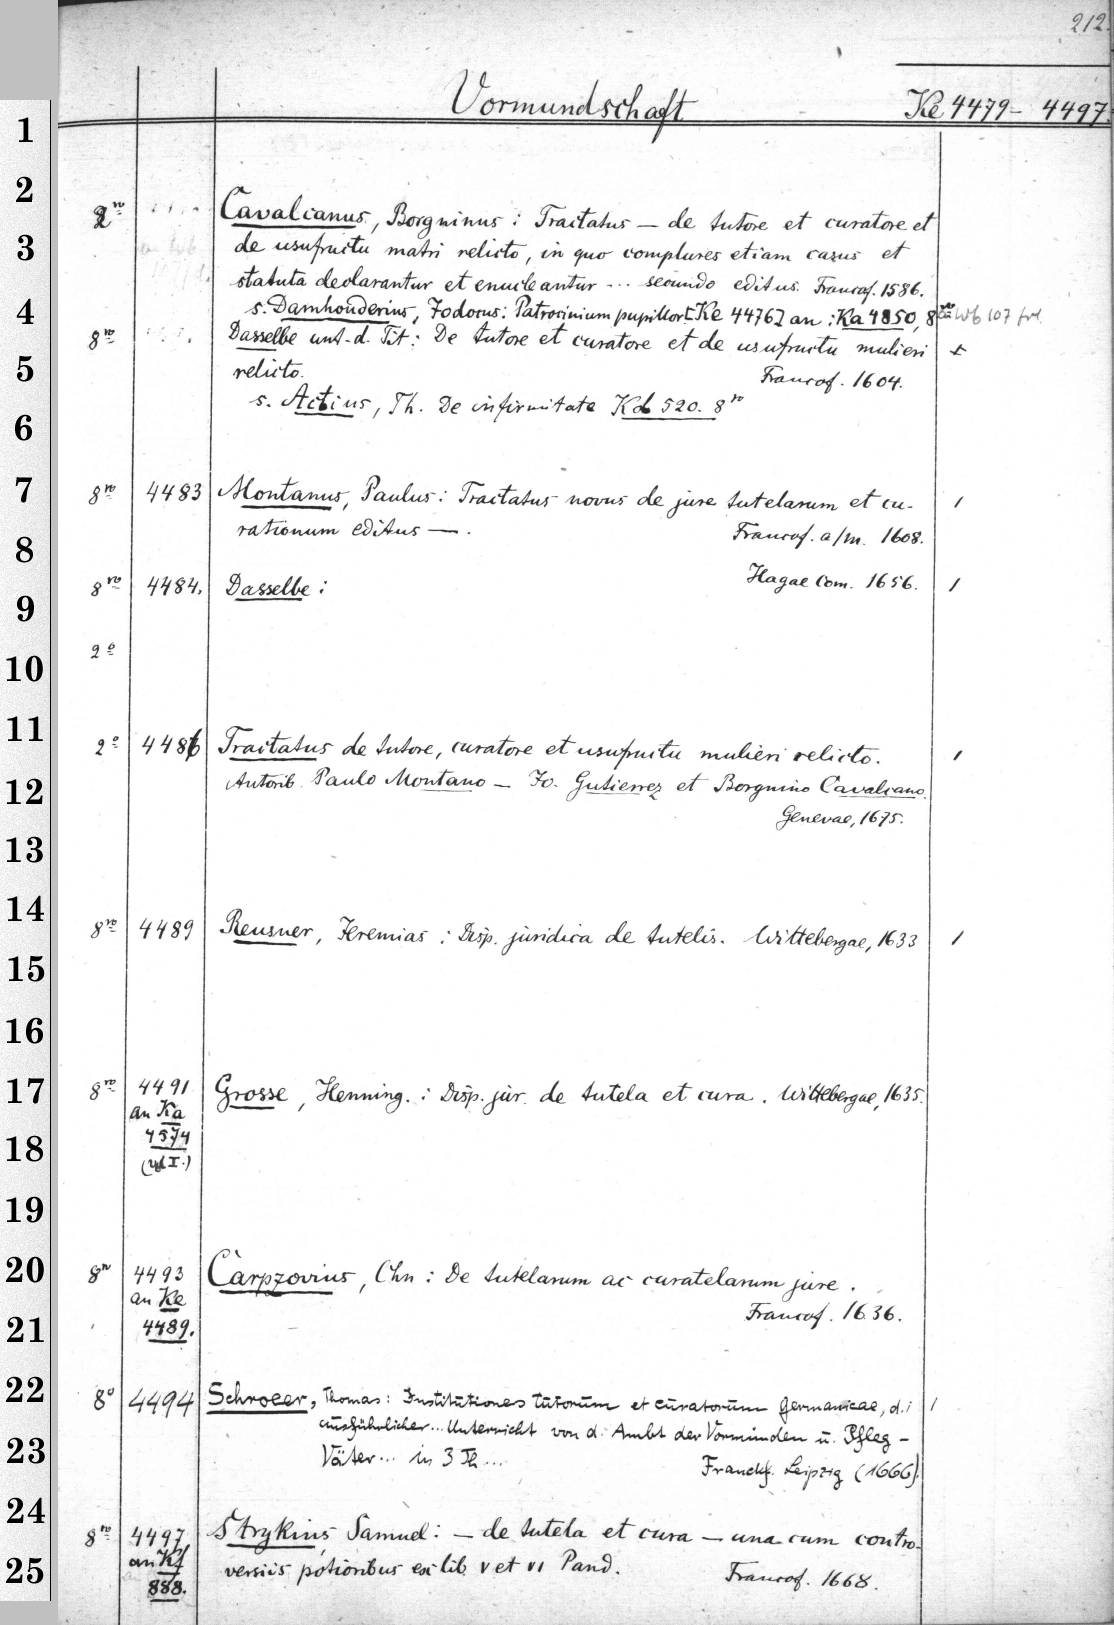 212.
Vormundschaft Ke 4479 – 4497.
Cavalcanus, Borgninus : Tractatus — de tutore et curatore et
de usufructu matri relicto, in quo complures etiam casus et
statuta declarantur et enucleantur ... secundo editus. Francof. 1586.
s. Damhouderius, Jodocus: Patrocinium pupillor. [Ke 4476] an : Ka 4850, 8ro Wb 107 frl.
8ro Dasselbe unt. d. Tit : De tutore et curatore et de usufructu mulieri
relicto. Francof. 1604.
s. Actius, Th. De infirmitate Kd 520. 8ro
8ro 4483 Montanus, Paulus : Tractatus novus de jure tutelarum et cu-
rationum editus — . Francof. a/m. 1608. 1
8ro 4484. Dasselbe : Hagae Com. 1656. 1
2o
2o 4486 Tractatus de tutore, curatore et usufructu mulieri relicto. 1
Autorib. Paulo Montano — Jo. Gutierrez et Borgnino Cavalcano.
Genevae, 1675.
8ro 4489 Reusner, Jeremias : Disp. juridica de tutelis. Wittebergae, 1633 1
8ro 4491 Grosse, Henning. : Disp. jur. de tutela et cura. Wittebergae, 1635.
an Ka
4574
8ro 4493 Carpzovius, Chn : De tutelarum ac curatelarum jure .
an Ke
4489. Francof. 1636.
8o 4494 Schroeer, Thomas: Institutiones tutorum et curatorum germanicae, d. i 1
ausführlicher... Unterricht von d. Ambt der Vormünden u. Pfleg-
Väter ... in 3 Th ... Franckf. Leipzig (1666).
8ro 4497 Strykius, Samuel : — de tutela et cura — una cum contro-
an Kf
versiis potioribus ex lib. V et VI Pand. Francof. 1668.
888.
1
2
3
4
5
6
7
8
9
10
11
12
13
14
15
16
17
18
19
20
21
22
23
24
25